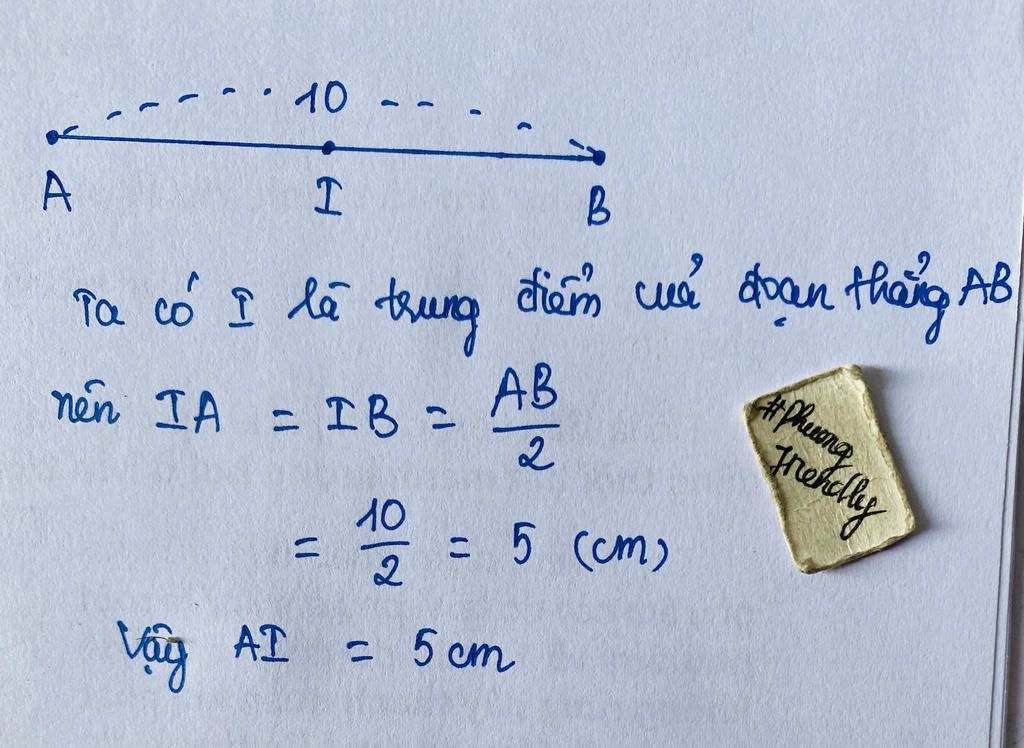 10
A I B
Ta có I là trung điểm của đoạn thẳng AB
nên IA = IB = AB/2
= 10/2 = 5 (cm)
Vậy AI = 5 cm
#Phuong
Friendly